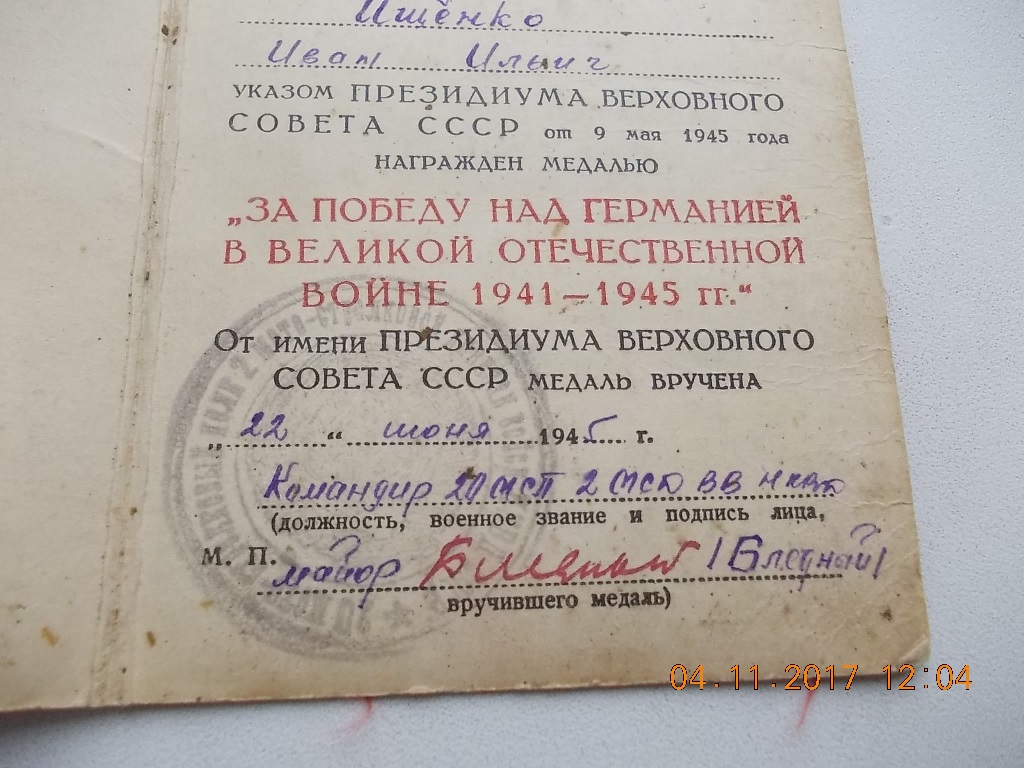 Ищенко
Иван Ильич
УКАЗОМ ПРЕЗИДИУМА ВЕРХОВНОГО
СОВЕТА СССР от 9 мая 1945 года
НАГРАЖДЕН МЕДАЛЬЮ
„ЗА ПОБЕДУ НАД ГЕРМАНИЕЙ
В ВЕЛИКОЙ ОТЕЧЕСТВЕННОЙ
ВОЙНЕ 1941—1945 гг.“
От имени ПРЕЗИДИУМА ВЕРХОВНОГО
СОВЕТА СССР МЕДАЛЬ ВРУЧЕНА
„22“ июня 1945 г.
Командир 20 МСП 2 МСД ВВ НКВД
(должность, военное звание и подпись лица,
М. П. майор /Бледный/
вручившего медаль)
04.11.2017 12:04